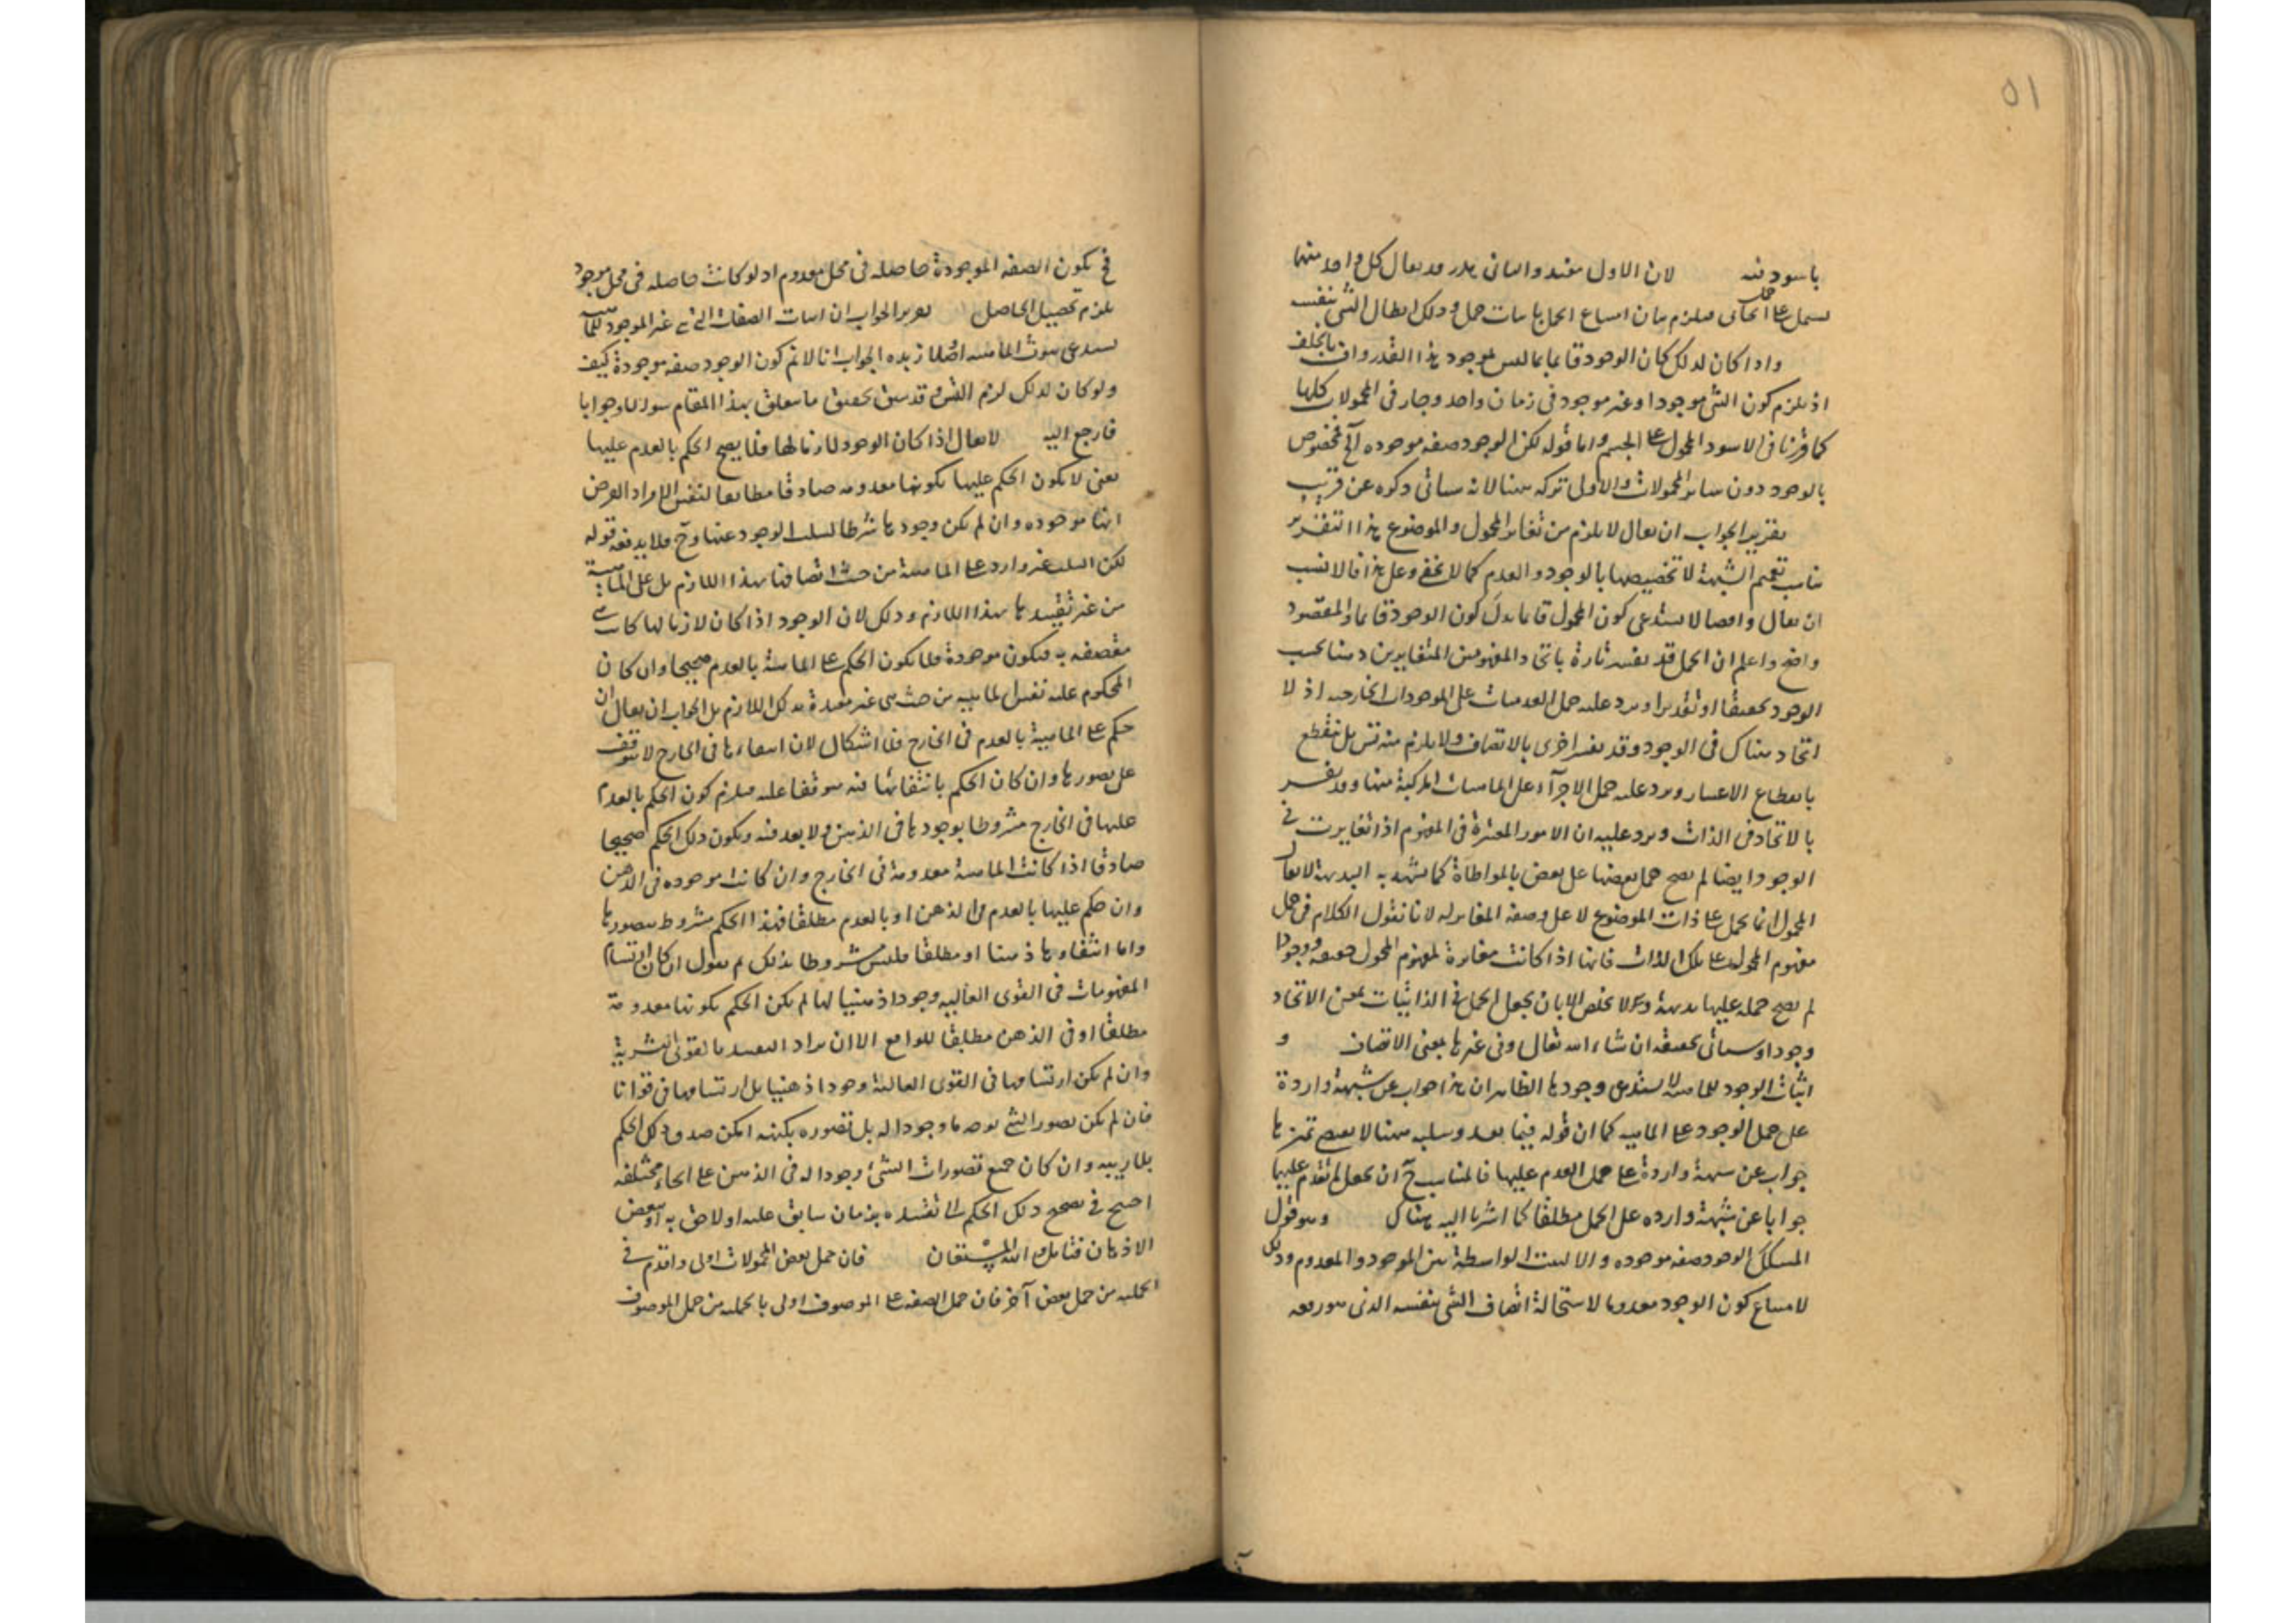 ٥١
باسود فيه لان الاول مفيد والثاني هدر وقد يقال كل واحد منهما
يشتمل على حمل فيلزم بيان امتناع الحمل باثبات حمل وذلك ابطال الشئ بنفسه
واذا كان كذلك كان الوجود قائما بما ليس بموجود هذا القدر واف بالخلف
اذ يلزم كون الشئ موجودا وغير موجود في زمان واحد وجار في المحمولات كلها
كما قررنا في الاسود المحمول على الجسم واما قوله لكن الوجود صفة موجودة آلخ فمخصوص
بالوجود دون سائر المحمولات والاولى تركه هنا لانه سيأتي ذكره عن قريب
تقرير الجواب ان يقال لا يلزم من تغاير المحمول والموضوع هذا التقرير
يناسب تعميم الشبهة لا تخصيصها بالوجود والعدم كما لا يخفى وعلى هذا فالانسب
ان يقال وايضا لا يستدعي كون المحمول قائما بدل كون الوجود قائما والمقصود
واضح واعلم ان الحمل قد يفسر تارة باتحاد المفهومين المتغايرين ذهنا بحسب
الوجود تحقيقا او تقديرا ويرد عليه حمل العدميات على الموجودات الخارجية اذ لا
اتحاد هناك في الوجود وقد يفسر اخرى بالاتصاف ولا يلزم منه تس بل ينقطع
بانقطاع الاعتبار ويرد عليه حمل الاجزآء على الماهيات المركبة منها وقد يفسر
بالاتحاد في الذات ويرد عليه ان الامور المعتبرة في المفهوم اذا تغايرت في
الوجود ايضا لم يصح حمل بعضها على بعض بالمواطاة كما يشهد به البديهة لا يقال
المحمول انما يحمل على ذات الموضوع لا على وصفه المغاير له لانا نقول الكلام في حمل
مفهوم المحمول على تلك الذات فانها اذا كانت مغايرة لمفهوم المحمول حقيقة ووجودا
لم يصح حمله عليها بديهة ولا مخلص الا بان يجعل الحمل في الذاتيات بمعنى الاتحاد
وجودا وسيأتي تحقيقه ان شاء الله تعالى وفي غيرها بمعنى الاتصاف و
اثبات الوجود للماهية لا يستدعي وجودها الظاهر ان هذا جواب عن شبهة واردة
على حمل الوجود على الماهية كما ان قوله فيما بعد وسلبه عنها لا يقتضي تميزها
جواب عن شبهة واردة على حمل العدم عليها فالمناسب ح ان يجعل لم تقدم عليها
جوابا عن شبهة واردة على الحمل مطلقا كما اشرنا اليه هناك وهو قول
المشكك الوجود صفة موجودة والا لثبت الواسطة بين الموجود والمعدوم وذلك
لامتناع كون الوجود معدوما لاستحالة اتصاف الشئ بنفسه الذي هو رفعه
فح تكون الصفة الموجودة حاصلة في محل معدوم اذ لو كانت حاصلة في محل موجود
يلزم تحصيل الحاصل تقرير الجواب ان اثبات الصفات التي هي غير الموجود للماهية
يستدعي ثبوت الماهية اولا زبدة الجواب انا لا نم كون الوجود صفة موجودة كيف
ولو كان كذلك لزم التس وقد سبق تحقيق ما يتعلق بهذا المقام سؤالا وجوابا
فارجع اليه لا يقال اذا كان الوجود لازما لها فلا يصح الحكم بالعدم عليها
يعني لا يكون الحكم عليها بكونها معدومة صادقا مطابقا لنفس الامر اذ الفرض
انها موجودة وان لم يكن وجودها شرطا لسلب الوجود عنها وح فلا يدفعه قوله
لكن السلب غير وارد على الماهية من حيث اتصافها بهذا اللازم بل على الماهية
من غير تقييدها بهذا اللازم وذلك لان الوجود اذا كان لازما لها كانت
متصفة به فيكون موجودة فلا يكون الحكم على الماهية بالعدم صحيحا وان كان
المحكوم عليه نفس الماهية من حيث هي غير مقيدة بذلك اللازم بل الجواب ان يقال ان
حكم على الماهية بالعدم في الخارج فلا اشكال لان انتفاءها في الخارج لا يتوقف
على تصورها وان كان الحكم بانتفائها فيه متوقفا عليه فيلزم كون الحكم بالعدم
عليها في الخارج مشروطا بوجودها في الذهن ولا بعد فيه ويكون ذلك الحكم صحيحا
صادقا اذا كانت الماهية معدومة في الخارج وان كانت موجودة في الذهن
وان حكم عليها بالعدم في الذهن او بالعدم مطلقا فهذا الحكم مشروط بتصورها
واما انتفاؤها ذهنا او مطلقا فليس مشروطا بذلك ثم نقول ان كان ارتسام
المفهومات في القوى العالية وجودا ذهنيا لها لم يكن الحكم بكونها معدومة
مطلقا او في الذهن مطابقا للواقع الا ان يراد التقييد بالقوى البشرية
وان لم يكن ارتسامها في القوى العالية وجودا ذهنيا بل ارتسامها في قوانا
فان لم يكن تصور الشئ بوجه ما وجودا له بل تصوره بكنهه امكن صدق ذلك الحكم
بلا ريبة وان كان جميع تصورات الشئ وجودا له في الذهن على انحاء مختلفة
احتيج في تصحيح ذلك الحكم الى تقييده بزمان سابق عليه او لاحق به او ببعض
الاذهان فتأمل والله المستعان فان حمل بعض المحمولات اولى واقدم في
الحملية من حمل بعض آخر فان حمل الصفة على الموصوف اولى بالحملية من حمل الموصوف